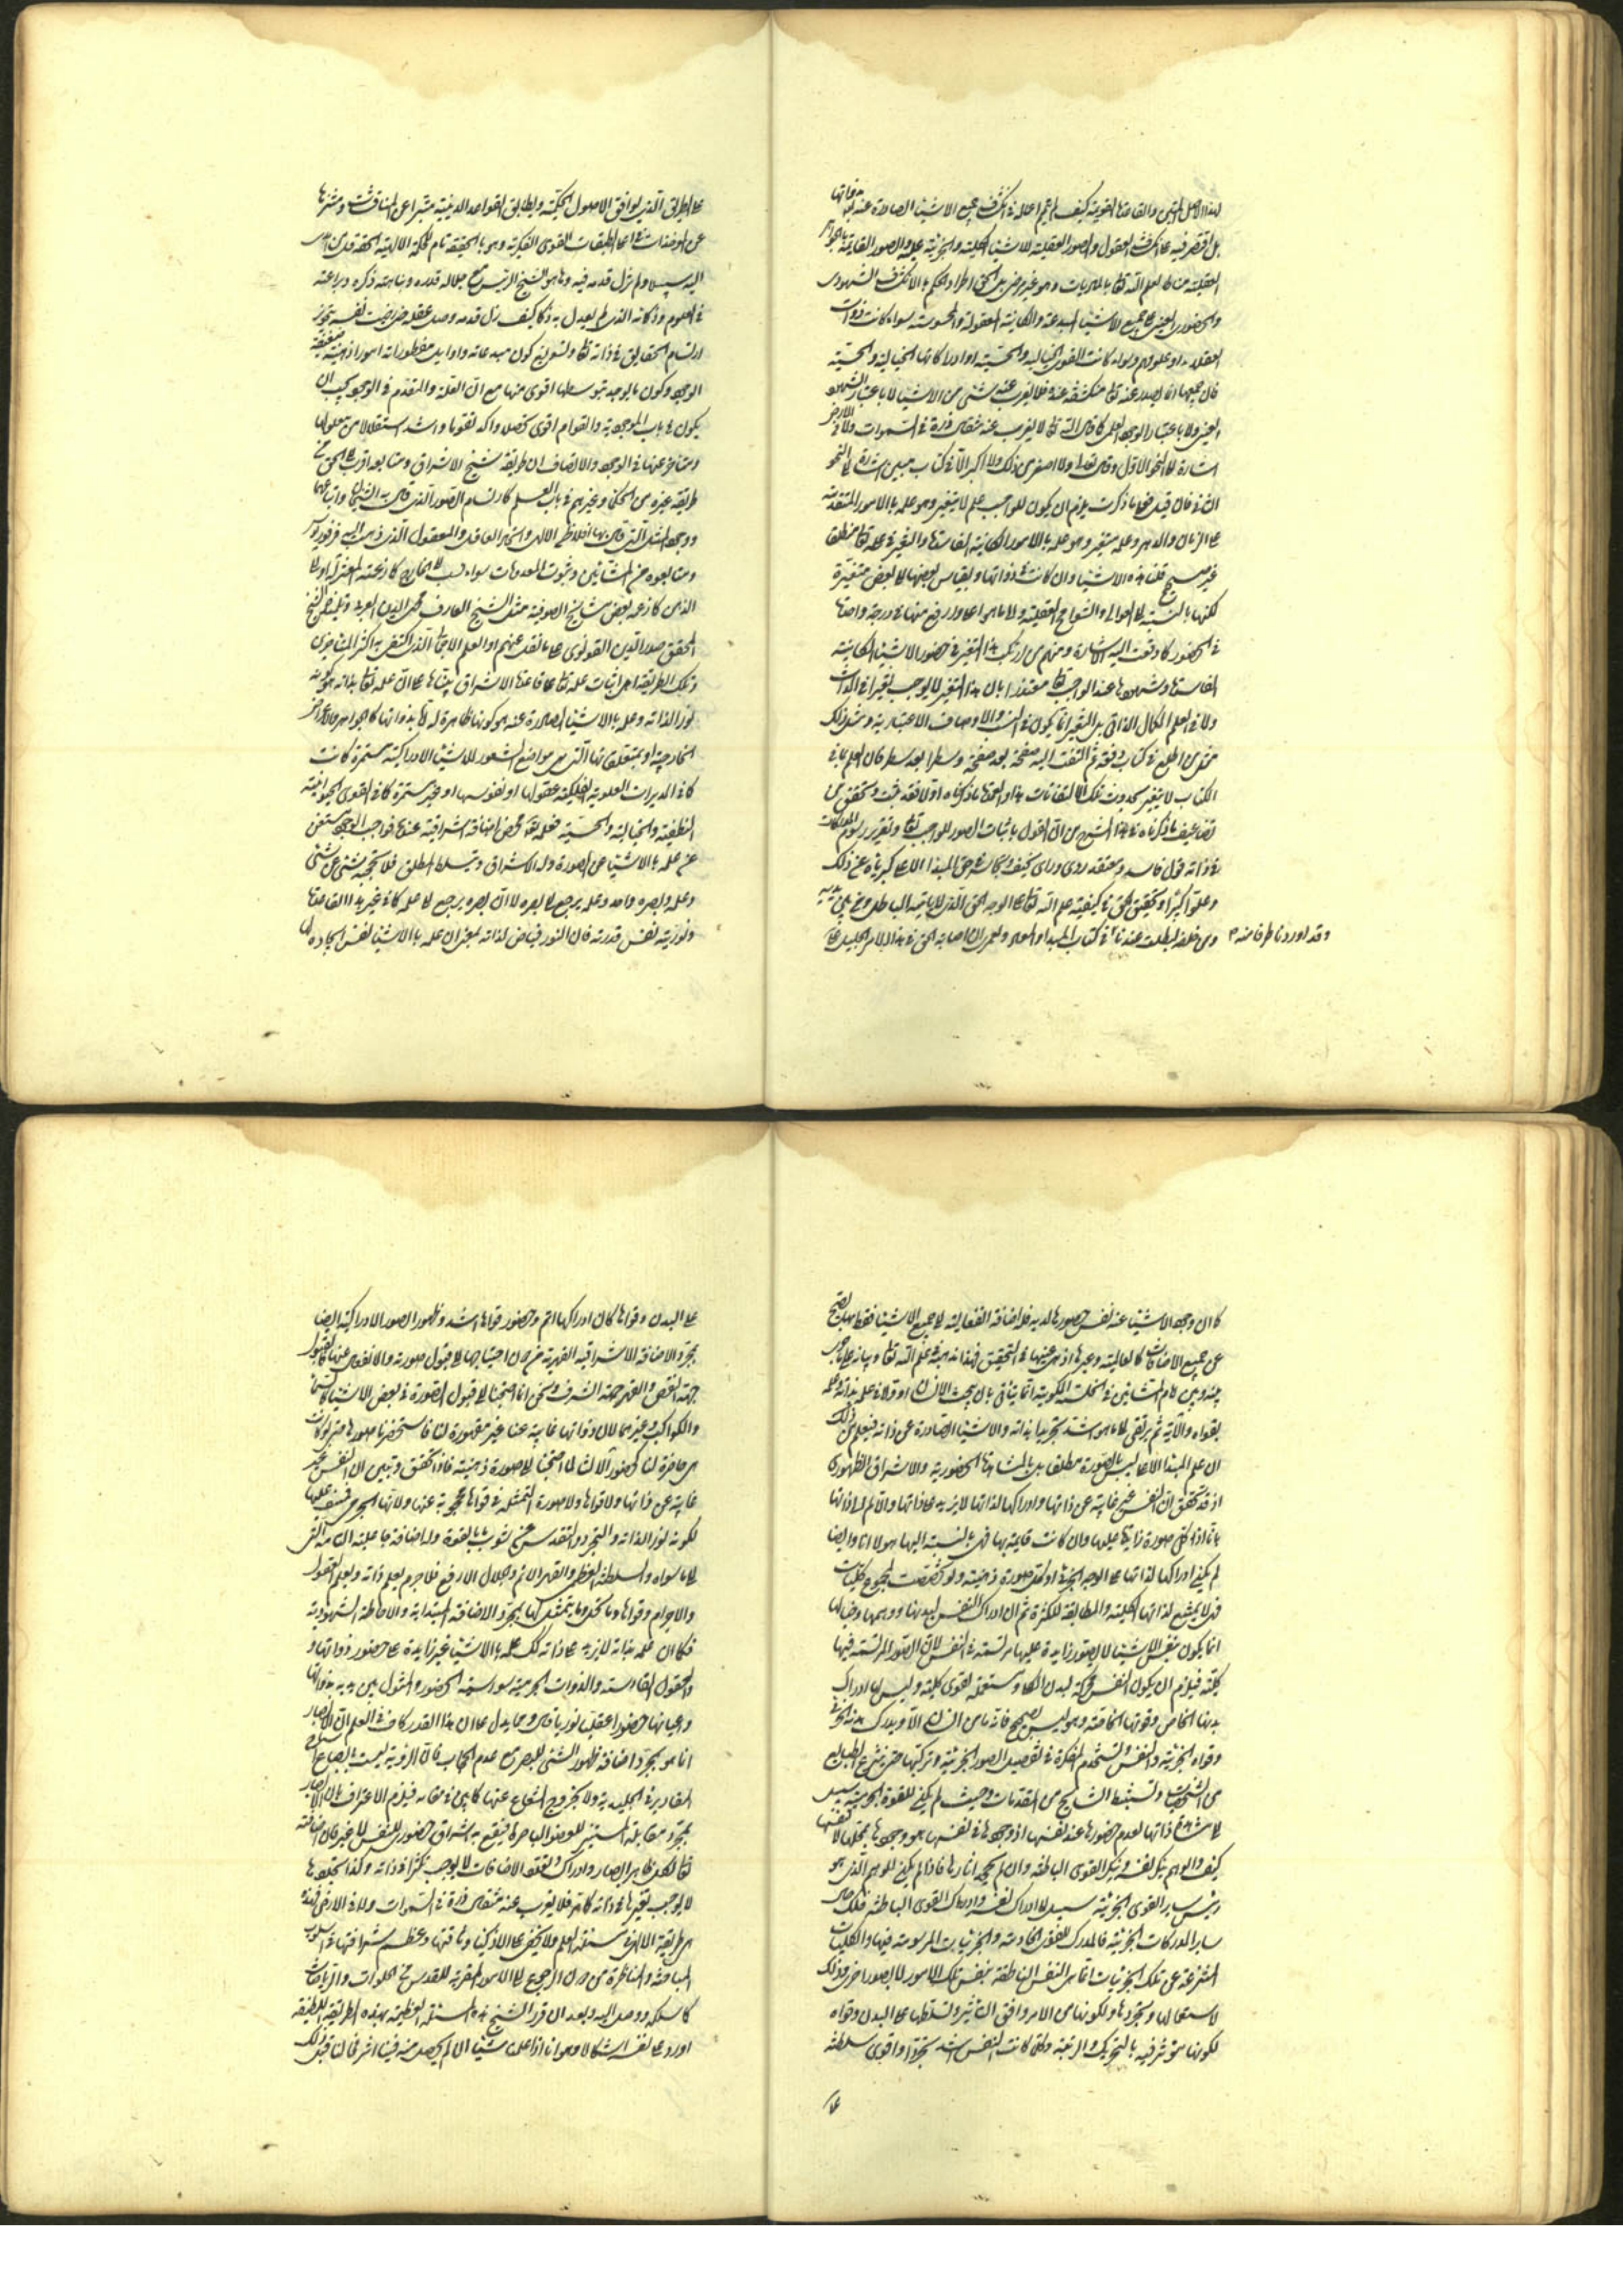 بل اقتصر فيه على انكشاف العقول والصور العقلية للاشياء الكلية والجزئية عليه والصور القائمة بالجواهر
العقلية مناطا لعلم الله تعا بالماديات وهو غير مرضي بل الحق اطراد الحكم بالانكشاف الشهودى
والحضورى العينى على جميع الاشياء المبدعة والكائنة المعقولة والمحسوسة سواء كانت ذوات
العقلاء او علومهم وسواء كانت القوى الخيالية والحسية او ادراكاتها الخيالية والحسية
فان جميعها انما يصدر عنه تعا منكشفة عنده فلا يعزب عنه شئ من الاشياء لا باعتبار الشهود
العينى ولا باعتبار الوجود العلمى كما قال الله تعا لا يعزب عنه مثقال ذرة فى السموات ولا فى الارض
اشارة الى النحو الاول وقوله تعا ولا اصغر من ذلك ولا اكبر الا فى كتاب مبين اشارة الى النحو
الثانى فان قيل فعلى ما ذكرت يلزم ان يكون للواجب علم لا يتغير وهو علمه بالامور المتقدمة
على الزمان والدهر وعلم متغير وهو علمه بالامور الكائنة الفاسدة والتغير فى علمه تعا مطلقا
غير صحيح قلنا هذه الاشياء وان كانت فى ذواتها وبقياس بعضها الى بعض متغيرة
لكنها بالنسبة الى العوالى والشوامخ العقلية والى ما هو اعلى وارفع منها فى درجة واحدة
فى الحضور كما وقعت اليه الاشارة ومنهم من ارتكب هذا التغير فى حضور الاشياء الكائنة
الفاسدة وشهودها عند الواجب تعا معتذرا بان هذا التغير لا يوجب تغيرا فى الذات
ولا فى العلم الكمالى الذاتى بل التغير انما يكون فى النسب والاوصاف الاعتبارية ومثل ذلك
مثل من اطلع فى كتاب دفعة ثم التفت اليه صفحة بعد صفحة وسطرا بعد سطر فان العلم بما فى
الكتاب لا يتغير بحدوث تلك الالتفاتات هذا والعمدة ما ذكرناه اولا فقد ثبت وتحقق من
تضاعيف ما ذكرناه فى هذا الشرح من ان القول باثبات الصور للواجب تعا وتقرير رسوم المدركات
فى ذاته قول فاسد ومعتقد ردى وراى سخيف
وتعالى علوا كبيرا وتحقيق الحق فى كيفية علم الله تعا على الوجه الحق الذى لا ياتيه الباطل من بين يديه
ومن خلفه يطلب عندنا فى كتاب المبدا والمعاد ولعمرى ان اصابة الحق فى هذا الامر الجليل
وقد اوردنا طرفا منه
على الطريق الذى يوافق الاصول الحكمية ويطابق القواعد الدينية متبرا عن المناقشات ومنزها
عن المؤاخذات فى اعلى طبقات القوى الفكرية وهو بالحقيقة تمام الحكمة الالهية الحقة
اليه سبيلا ولم تزل قدمه فيه وها هو الشيخ الرئيس مع جلالة قدره ونباهة ذكره وبراعته
فى العلوم وذكائه الذى لم يعدل به ذكاء كيف زل قدمه وضل عقله حتى رضيت نفسه بتجويز
ارتسام الحقايق فى ذاته تعا وتسويغ كون مبدعاته واوايل مفطوراته امورا ذهنية ضعيفة
الوجود وكون ما يوجد بتوسطها اقوى منها مع ان العلة والمتقدم فى الوجود يجب ان
يكون فى باب الموجودية والقوام اقوى تحصلا واكد تقوما واشد استقلالا من معلولها
ومتاخر عنها فى الوجود والانصاف ان طريقة شيخ الاشراق ومتابعيه اقرب الى الحق من
طريقة غيره من الحكماء وغيرهم فى باب العلم كارتسام الصور الذى قال به الشيخان واتباعهما
ووجود المثل التى قال بها افلاطن الالهى واتحاد العاقل والمعقول الذى ذهب اليه فرفوريوس
ومتابعوه من المشائين وثبوت المعدومات سواء نسب الى الخارج كما زعمته المعتزلة او الى
الذهن كما زعمه بعض مشايخ الصوفية مثل الشيخ العارف محى الدين العربى وتلميذه الشيخ
المحقق صدر الدين القونوى على ما نقل عنهم او العلم الاجمالى الذى اكتفى به اكثر المتاخرين
وتلك الطريقة هى اثبات علمه تعا على قاعدة الاشراق مبناها على ان علمه تعا بذاته هو كونه
نورا لذاته وعلمه بالاشياء الصادرة عنه هو كونها ظاهرة له اما بذواتها كالجواهر والاعراض
الخارجية او بمتعلقاتها التى هى مواضع الشعور للاشياء الادراكية مستمرة كانت
كما فى المدبرات العلوية الفلكية عقولها او نفوسها او غير مستمرة كما فى القوى الحيوانية
النطقية والخيالية والحسية فعلمه تعا محض اضافة اشراقية عندهم فواجب الوجود مستغن
عن علمه بالاشياء عن الصورة وله الاشراق وتسلط المطلق فلا يحجبه شئ عن شئ
وعلمه وبصره واحد وعلمه يرجع الى بصره لا ان بصره يرجع الى علمه كما فى غير هذا القاعدة
ونوريته نفس قدرته فان النور فياض لذاته بمعنى ان علمه بالاشياء نفس ايجاده لها
كما ان وجود الاشياء عنه نفس حضورها لديه فله اضافة الفعالية الى جميع الاشياء فقط بها يصحح
عن جميع الاضافات كالعالمية وغيرها اذ هى عينها فى التحقيق فهذا مذهبه فى علم الله تعا وبيانه على ما جرى
بينه وبين امام المشائين فى الخلسة الملكوتية انما يتاتى بان يبحث الانسان اولا فى علمه بذاته وعلمه
بقواه والآته ثم يرتقى الى ما هو اشد تجردا بذاته والاشياء الصادرة عن ذاته فيعلم من ذلك
ان علم المبدا الاعلى ليس بالصورة مطلقا بل بالمشاهدة الحضورية والاشراق الظهورى
اذ قد تحقق ان النفس غير غايبة عن ذاتها وادراكها لذاتها لا يزيد على ذاتها والا لم تكن ذاتها
بانا اذ كل صورة زايدة عليها وان كانت قايمة بها فهى بالنسبة اليها هو لا انا وايضا
لم يكن ادراكها لذاتها على الوجه الجزئى او لكل صورة ذهنية ولو تخصصت بمجموع كليات
فهى لا يمتنع لذاتها الكلية والمطابقة للكثرة ثم ان ادراك النفس لبدنها ووهمها وخيالها
انما يكون بنفس الاشياء لا بصور زايدة عليها مرتسمة فى النفس لان الصور المرتسمة فيها
كلية فيلزم ان يكون النفس محركة لبدن كلى ومستعملة لقوى كلية وليس لها ادراك
بدنها الخاص وقوتها الخاصة وهو ليس بصحيح فانه ما من انسان الا ويدرك بدنه الجزئى
وقواه الجزئية والنفس تستخدم المفكرة فى تفصيل الصور الجزئية وتركيبها حتى ينتزع الطبايع
من الشخصيات وتستنبط النتايج من المقدمات وحيث لم يكن للقوة الجرمية سبيل
الى مشاهدة ذاتها لعدم حضورها عند نفسها اذ وجودها فى نفسها هو وجودها لمحلها لا لنفسها
كيف والوهم ينكر نفسه وينكر القوى الباطنة وان لم يجحد اثارها فاذا لم يكن للوهم الذى هو
رئيس ساير القوى الجزئية سبيل الى ادراك نفسه وادراك القوى الباطنة فكذلك حال
ساير المدركات الجزئية فالمدرك للقوى الخادمة والجزئيات المرسومة فيها والكليات
المنتزعة عن تلك الجزئيات انما هى النفس الناطقة بنفس تلك الامور لا بصور اخرى وذلك
لاستعمالها وتجردها ولكونها من الامر وافق التاثير وتسلطها على البدن وقواه
لكونها مؤثرة فيه بالتحريك والرغبة وكلما كانت النفس اشد تجردا واقوى سلطنة
على
على البدن وقواها كان ادراكها اتم وحضور قواها اشد وظهور الصور الادراكية ايضا
بمجرد الاضافة الاشراقية القهرية من دون احتياجها الى قبول صورة والانفعال عنها فالقبول
جهة النقص والقهر جهة الشرف ونحن انما احتجنا الى قبول الصورة فى بعض الاشياء كالسماء
والكواكب وغيرهما لان ذواتها غايبة عنا غير مقهورة لنا فاستحضرنا صورها حتى لو كانت
هى حاضرة لنا كحضور آلاتنا لما احتجنا الى صورة ذهنية فاذا تحقق وتبين ان النفس غير
غايبة عن ذاتها ولا قواها ولا صورة المتمثلة فى قواها محجوبة عنها ولا بدنها الجرمى
لكونه نور الذاته والتجرد والتقدس عن شوب ما بالقوة وله اضافة جاعلية التامة التى
الى ما سواه والسلطنة العظمى والقهر الاتم والجلال الارفع فلا جرم يعلم ذاته ويعلم العقول
والاجرام وقواها وما تحل وما يتمثل لها بمجرد الاضافة المبدئية والاحاطة الشهودية
فكما ان علمه بذاته لا يزيد على ذاته كذلك علمه بالاشياء غير زايدة على حضور ذواتها
والعقول القادسة والذوات الجرمية سواسية الحضور والمثول بين يديه بذواتها
واعيانها حضورا عقليا نوريا قال ومما يدل على ان هذا القدر كاف فى العلم ان الابصار
انما هو بمجرد اضافة ظهور الشئ للبصر مع عدم الحجاب فان الرؤية ليست بانطباع اشباح
المقادير فى الجليدية ولا بخروج الشعاع عنها كما بين فى مقامه فيلزم الاعتراف بان الابصار
بمجرد مقابلة المستنير للعضو الباصر فيقع به اشراق حضورى للنفس لا غير فاذن اضافته
تعا لكل ظاهر ابصار وادراك وتعدد الاضافات لا يوجب تكثرا فى ذاته وكذا تجددها
لا يوجب تغيرها فى ذاته كما مر فلا يعزب عنه مثقال ذرة فى السموات ولا فى الارض فهذه
هى طريقة الالهى فى مسئلة العلم ولا يخفى على الاذكياء وثاقتها وعظم شرافتها فى اسلوب
المباحثة والمناظرة من دون الرجوع الى الامور المقربة للقدس من الخلوات والرياضات
كما سلكه ووصل اليه وبعد ان قرر الشيخ هذه المسئلة العظيمة بهذه الطريقة اللطيفة
اورد على نفسه اشكالا وهو انا اذا علمنا شيئا ان لم يحصل منه فينا اثر فحالنا قبل ذلك